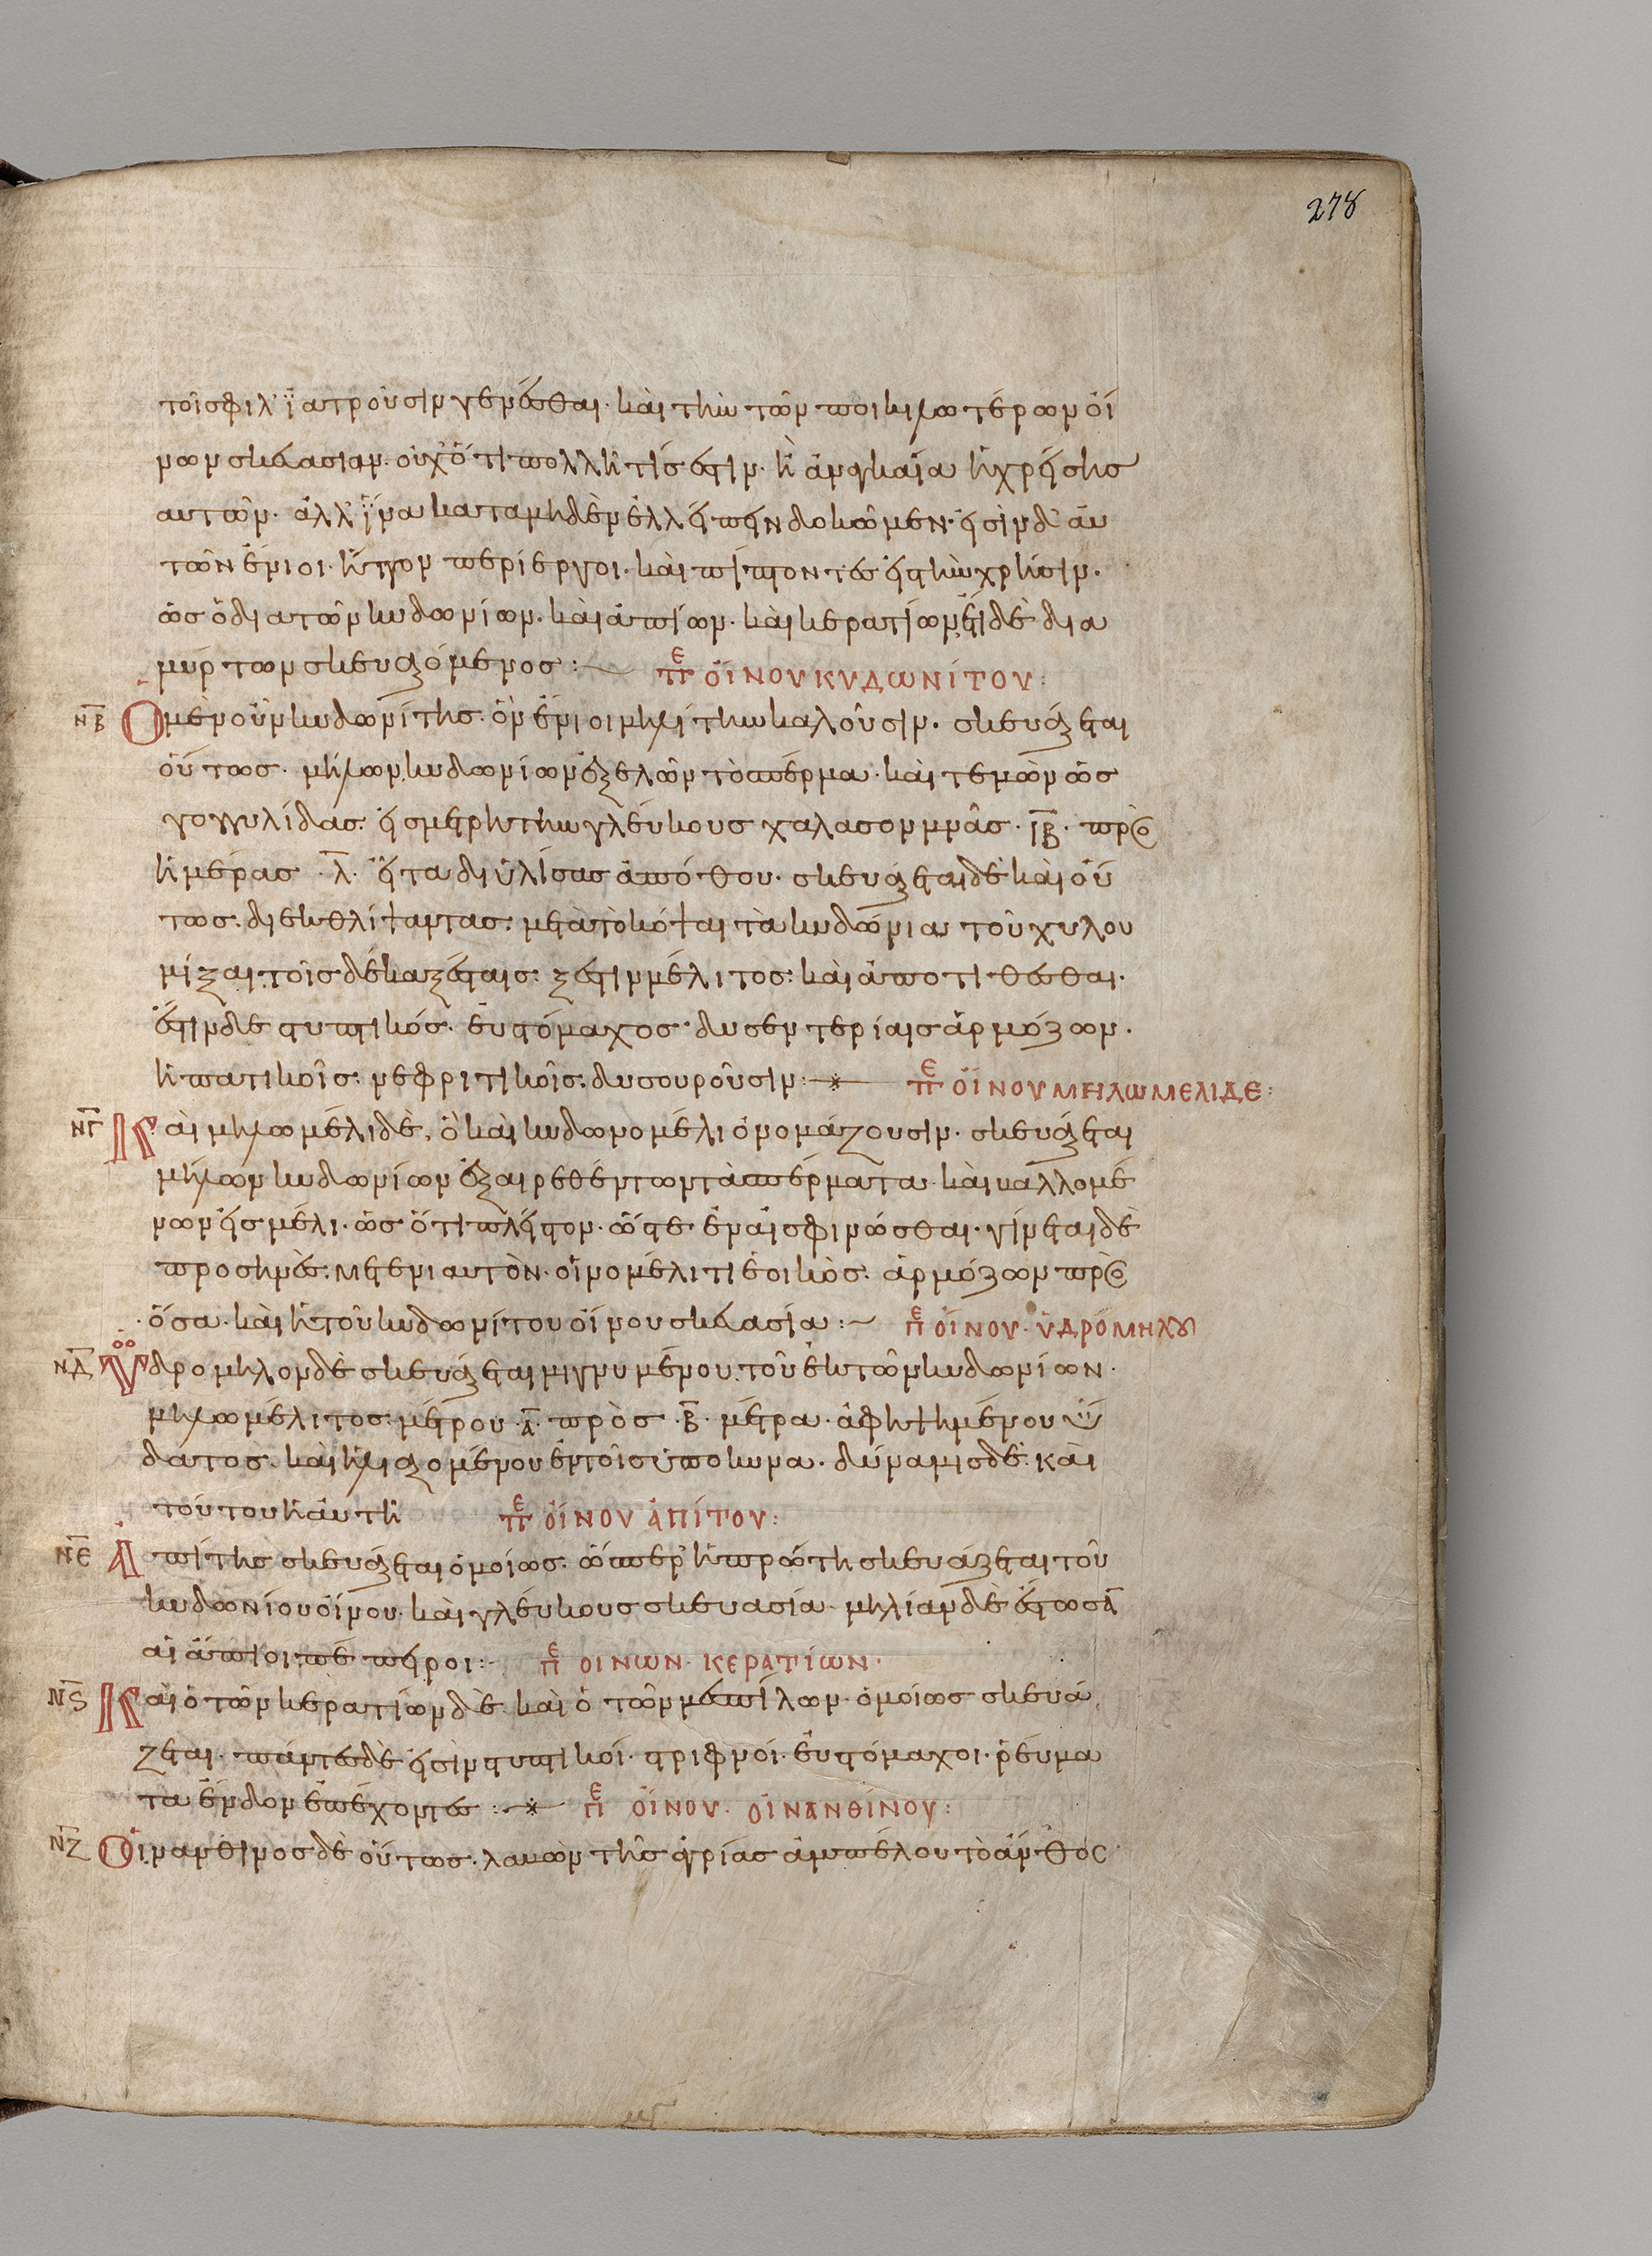 278
τοῖς φιλϊατροῦσιν γενέσθαι· καὶ τὴν τῶν ποικιλωτέρων οἴ
νων σκευασίαν· οὐχ ὅτι πολλή τίς ἐστιν· ἢ ἀνγκαία ἡ χρήσης
αυτῶν· ἀλλ' ἵνα κατα μηδὲν ἐλλείπειν δοκῶμεν· εἰσὶν δὲ ἀυ
τῶν ἔνιοι· ἧττον περίεργοι· καὶ πίπτοντες εἰς τὴν χρῆσιν·
ὡς ὁ διὰ τῶν κυδωνίων· καὶ ἀπίων· καὶ κερατίων, ἔτι δὲ δια
μύρτων σκευαζόμενος :
περ ὄινου κυδωνίτου :
ΝΒ Ὁ μὲν οὖν κυδωνίτης· ὃν ἔνιοι μηλίτην καλοῦσιν· σκευάζεται
οὕτως· μήλων κυδωνίων ἐξελῶν τὸ σπέρμα· καὶ τεμὼν ὡς
γογγυλίδας· εἰς μετρητὴν γλέυκους χαλασον μνᾶς· ΙΒ· πρὸς
ἡμέρας· Λ· εἶτα διϋλίσας ἀπόθου· σκευάζεται δὲ καὶ οὕ
τως· διεκθλίψαντας· μετὰ τὸ κόψαι τὰ κυδώνια τοῦ χυλου
μίξαι τοῖς δέκα ξέσταις· ξέστιν μέλιτος· καὶ ἀποτιθέσθαι·
ἔστιν δε στυπτικός· ἐυστόμαχος· δυσεντερίαις ἁρμόζων·
ἡπατικοῖς· νεφριτικοῖς· δυσουροῦσιν :
περ ὄινου μηλωμελιδε :
ΝΓ Καὶ μηλωμέλι δὲ, ὃ καὶ κυδωνομέλι ὀνομάζουσιν· σκευάζεται
μήλων κυδωνίων ἐξαιρεθέντων τὰ σπέρματα· καὶ καλλομέ
νων εἰς μέλι· ὡς ὅτι πλεῖστον· ὥστε ἐναἰσφινῶσθαι· γίνεται δὲ
προσηνές· μετ ενιαυτὸν· οἰνομέλιτι ἐοικὸς· ἁρμόζων πρὸς
ὅσα· καὶ ἡ τοῦ κυδωνίτου οἴνου σκευασία :
περ ὄινου· ὑδρόμηλου
ΝΔ Ὑδρομηλον δὲ σκευάζεται μιγνυμένου τοῦ ἐκ τῶν κυδωνίων·
μηλωμέλιτος· μέτρου· Α· πρὸς· Β· μέτρα· ἀφηψημένου ὕ
δατος· καὶ ἡλιαζομένου ἐν τοῖς ὑπο κυνα· δύναμις δὲ· καὶ
τούτου ἡ ἀυτὴ
περ ὄινου ἀπίτου :
ΝΕ Ἀπίτης σκευάζεται ὁμοίως· ὥσπερ ἡ πρώτη σκευάζεται τοῦ
κυδωνίου οἴνου· καὶ γλέυκους σκευασία· μὴ λίαν δὲ ἔστωσα
αἱ ἄπιοι πέπειροι :
περ οινων κερατίων·
ΝϚ Καὶ ὁ τῶν κερατίων δὲ· καὶ ὁ τῶν μεσπίλων· ὁμοίως σκευά
ζεται· πάντες δὲ εἰσὶν στυπτικοί· στριφνοί· ἐυστόμαχοι· ῥέυμα
τα ἔνδον ἐπέχοντες :
περ ὄινου· ὀινανθίνου :
ΝΖ Ὀινάνθινος δὲ οὕτως· λαβὼν τῆς ἀγρίας ἀμπέλου τὸ ἄνθος